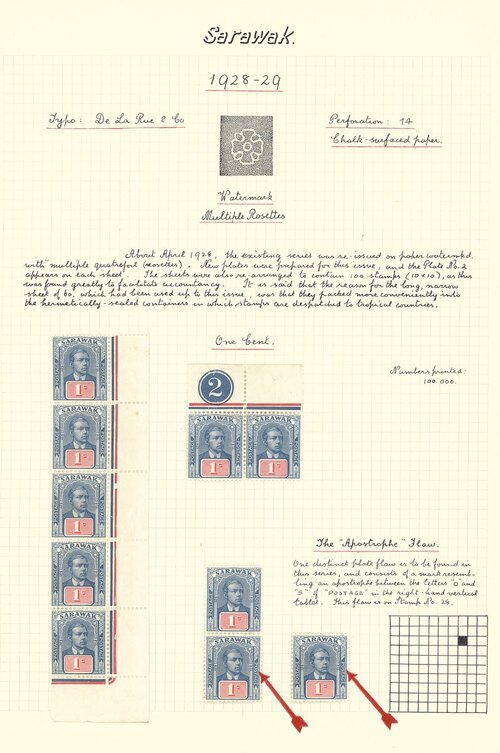 Sarawak.
1928-29
Typo: De La Rue & Co
Perforation: 14
Chalk-surfaced paper.
Watermark
Multiple Rosettes
About April 1928, the existing series was re-issued on paper watermkd.
with "multiple quatrefoil (rosettes)". New plates were prepared for this issue, and the Plate No. 2
appears on each sheet. The sheets were also re-arranged to contain 100 stamps (10×10), as this
was found greatly to facilitate accountancy. It is said that the reason for the long, narrow
sheet of 60, which had been used up to this issue, was that they packed more conveniently into
the hermetically-sealed containers in which stamps are despatched to tropical countries.
One Cent.
Numbers printed:
100.000.
SARAWAK
1c
SARAWAK
1c
SARAWAK
1c
SARAWAK
1c
SARAWAK
1c
2
SARAWAK SARAWAK
1c 1c
The "Apostrophe" Flaw.
One distinct plate flaw is to be found in
this series, and consists of a mark resemb-
ling an apostrophe between the letters "O" and
"S" of "POSTAGE" in the right-hand vertical
tablet. This flaw is on Stamp No. 28.
SARAWAK
1c
SARAWAK
1c
SARAWAK
1c